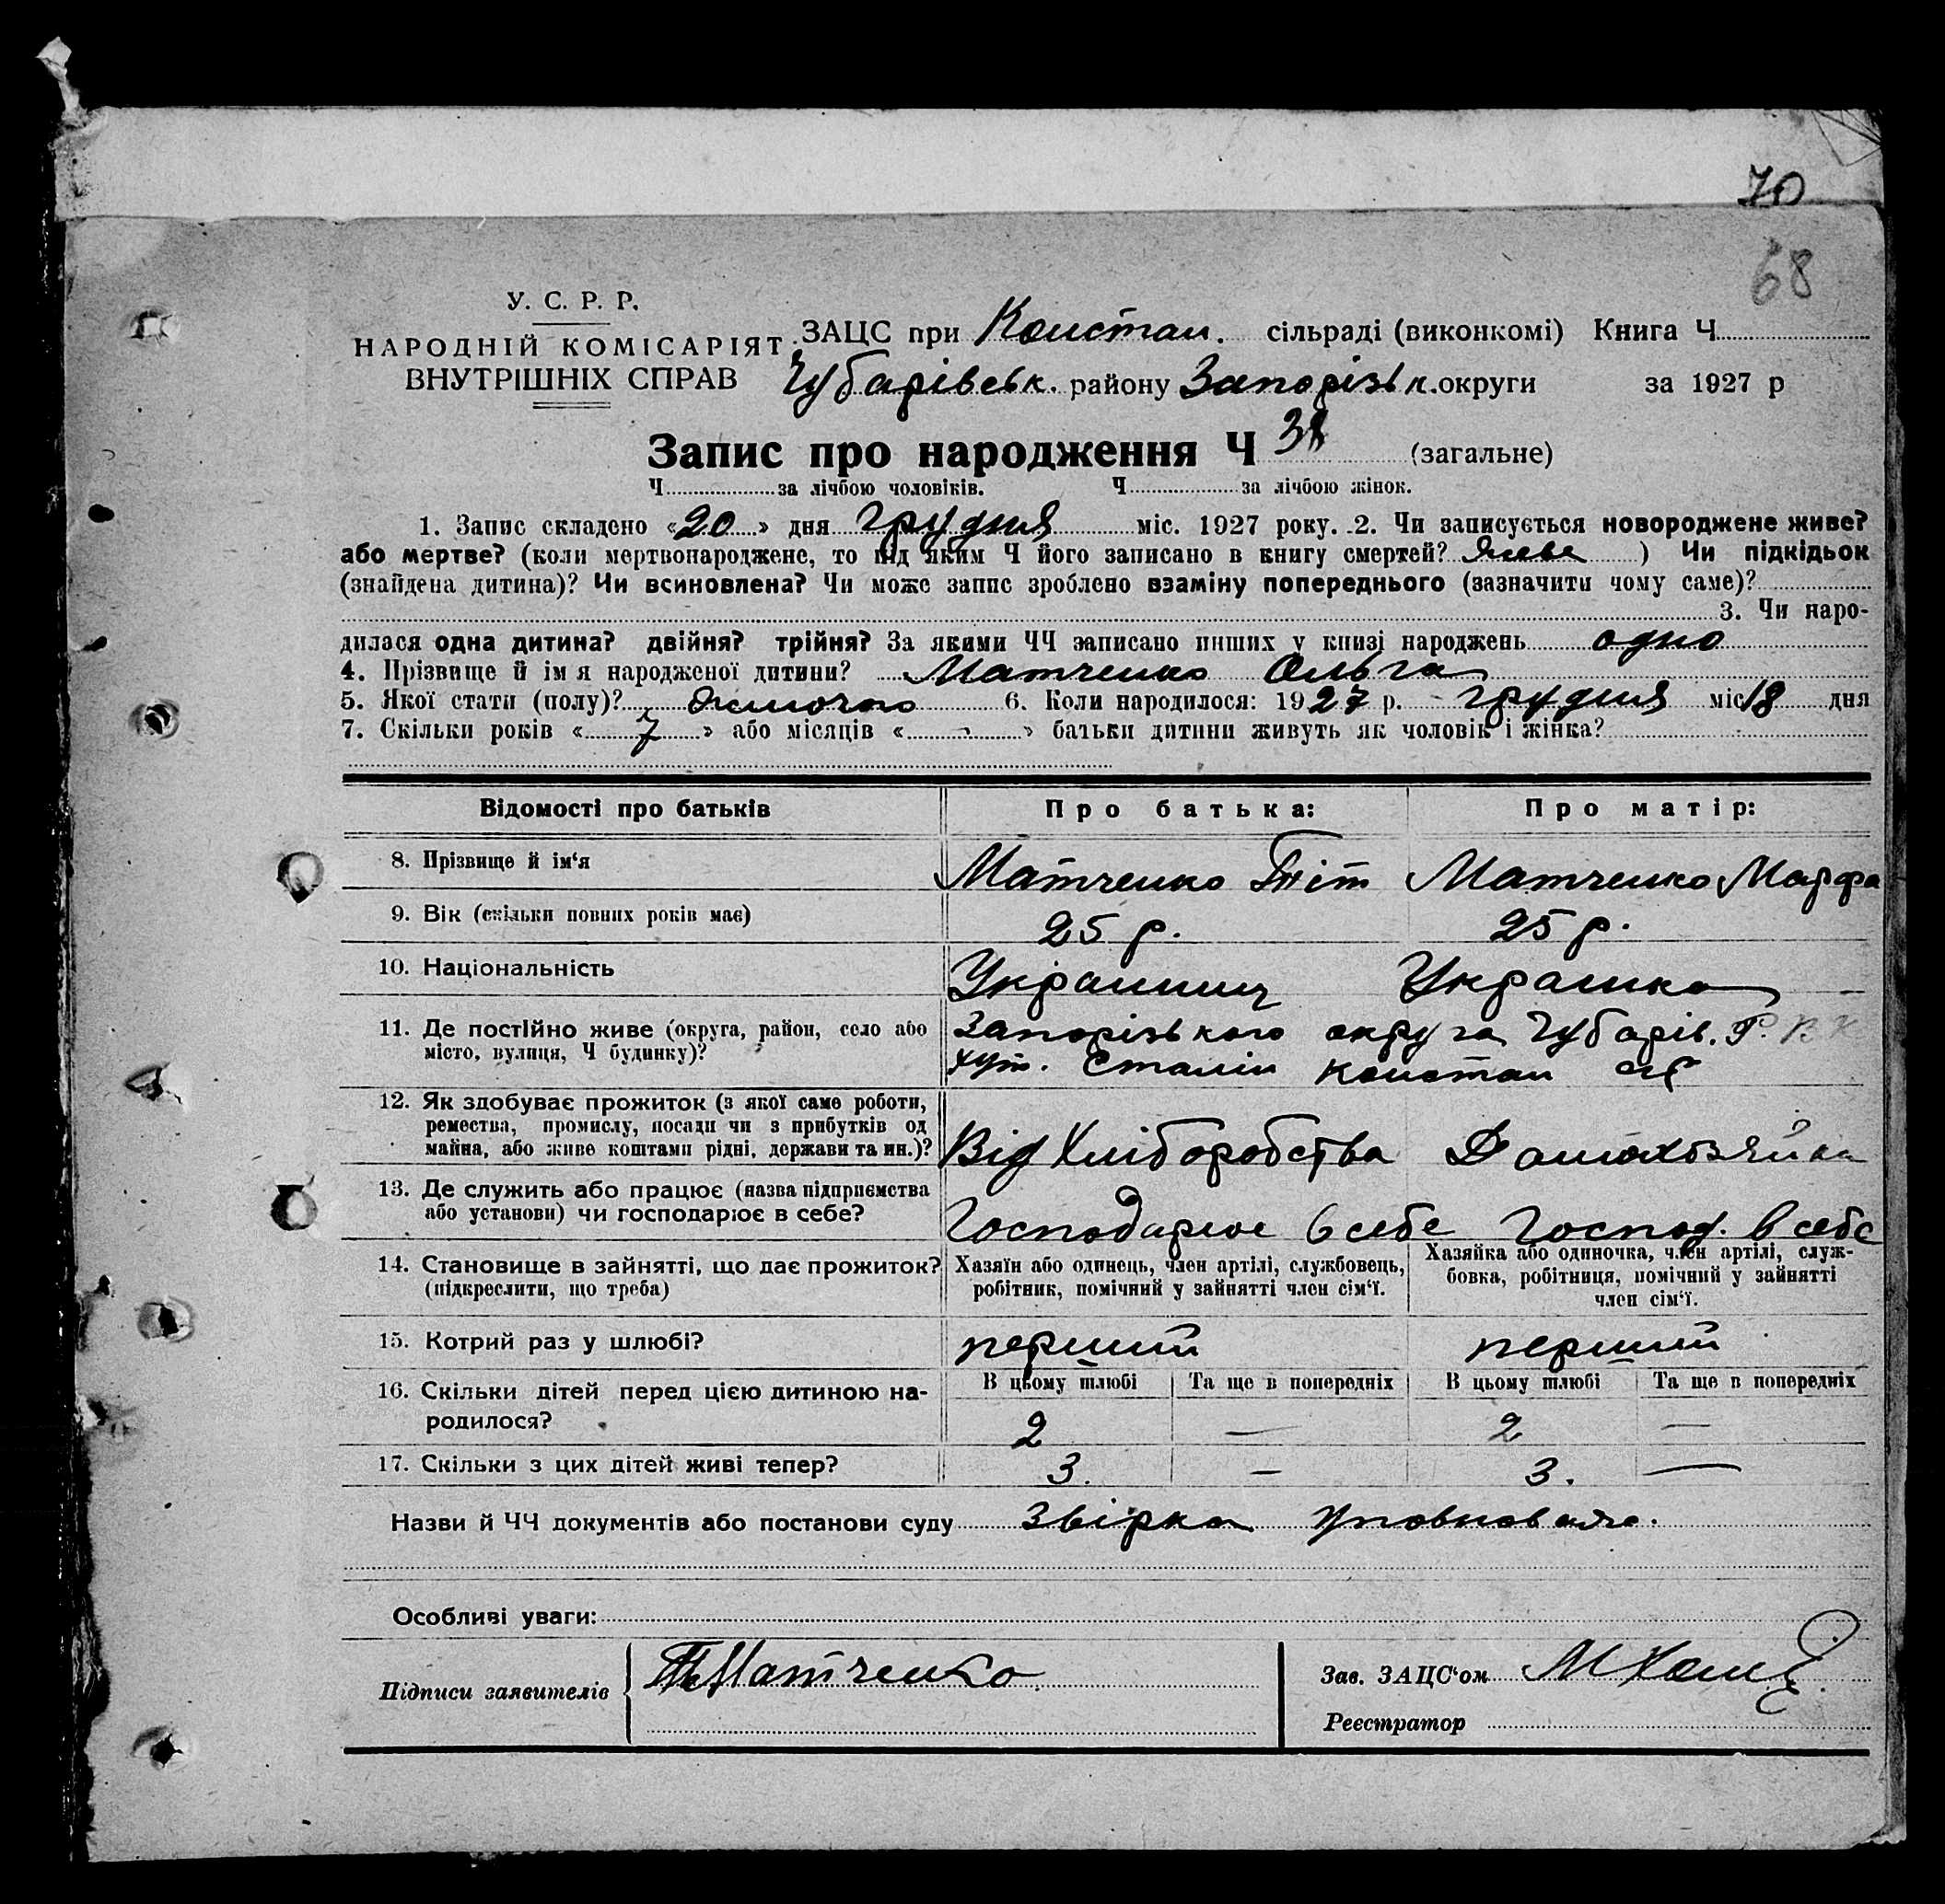 70
68
У. С. Р. Р.
НАРОДНІЙ КОМІСАРІЯТ
ВНУТРІШНІХ СПРАВ
ЗАЦС при Констан. сільраді (виконкомі) Книга Ч
Чубарівськ. району Запорізьк. округи за 1927 р
Запис про народження Ч 38 (загальне)
Ч за лічбою чоловіків. Ч за лічбою жінок.
1. Запис складено «20» дня грудня міс. 1927 року. 2. Чи записується новороджене живе?
або мертве? (коли мертвонароджене, то під яким Ч його записано в книгу смертей? живе ) Чи підкідьок
(знайдена дитина)? Чи всиновлена? Чи може запис зроблено взаміну попереднього (зазначити чому саме)?
3. Чи наро-
дилася одна дитина? двійня? трійня? За якими ЧЧ записано инших у книзі народжень одно
4. Прізвище й ім я народженої дитини? Матченко Ольга
5. Якої стати (полу)? жіночого 6. Коли народилося: 1927 р. грудня міс 18 дня
7. Скільки років «7» або місяців « - » батьки дитини живуть як чоловік і жінка?
Відомості про батьків Про батька: Про матір:
8. Прізвище й ім'я Матченко Тіт Матченко Марфа
9. Вік (скільки повних років має) 25 р. 25 р.
10. Національність Українець Українка
11. Де постійно живе (округа, район, село або Запорізького округа Чубарів. Р. В К
місто, вулиця, Ч будинку)? хут. Сталін Констан с/р
12. Як здобуває прожиток (з якої саме роботи,
ремества, промислу, посади чи з прибутків од
майна, або живе коштами рідні, держави та ин.)? Від Хліборобства Домохозяйка
13. Де служить або працює (назва підприємства
або установи) чи господарює в себе? Господарює в себе Господ. в себе
14. Становище в зайнятті, що дає прожиток? Хазяїн або одинець, член артілі, службовець, Хазяйка або одиночка, член артілі, служ-
(підкреслити, що треба) робітник, помічний у зайнятті член сім'ї. бовка, робітниця, помічний у зайнятті
член сім'ї.
15. Котрий раз у шлюбі? перший перший
16. Скільки дітей перед цією дитиною на- В цьому шлюбі Та ще в попередніх В цьому шлюбі Та ще в попередніх
родилося? 2 — 2 —
17. Скільки з цих дітей живі тепер? 3. — 3. —
Назви й ЧЧ документів або постанови суду Звірка
Особливі уваги:
Підписи заявителів Т Матченко
Зав. ЗАЦС'ом
Реєстратор